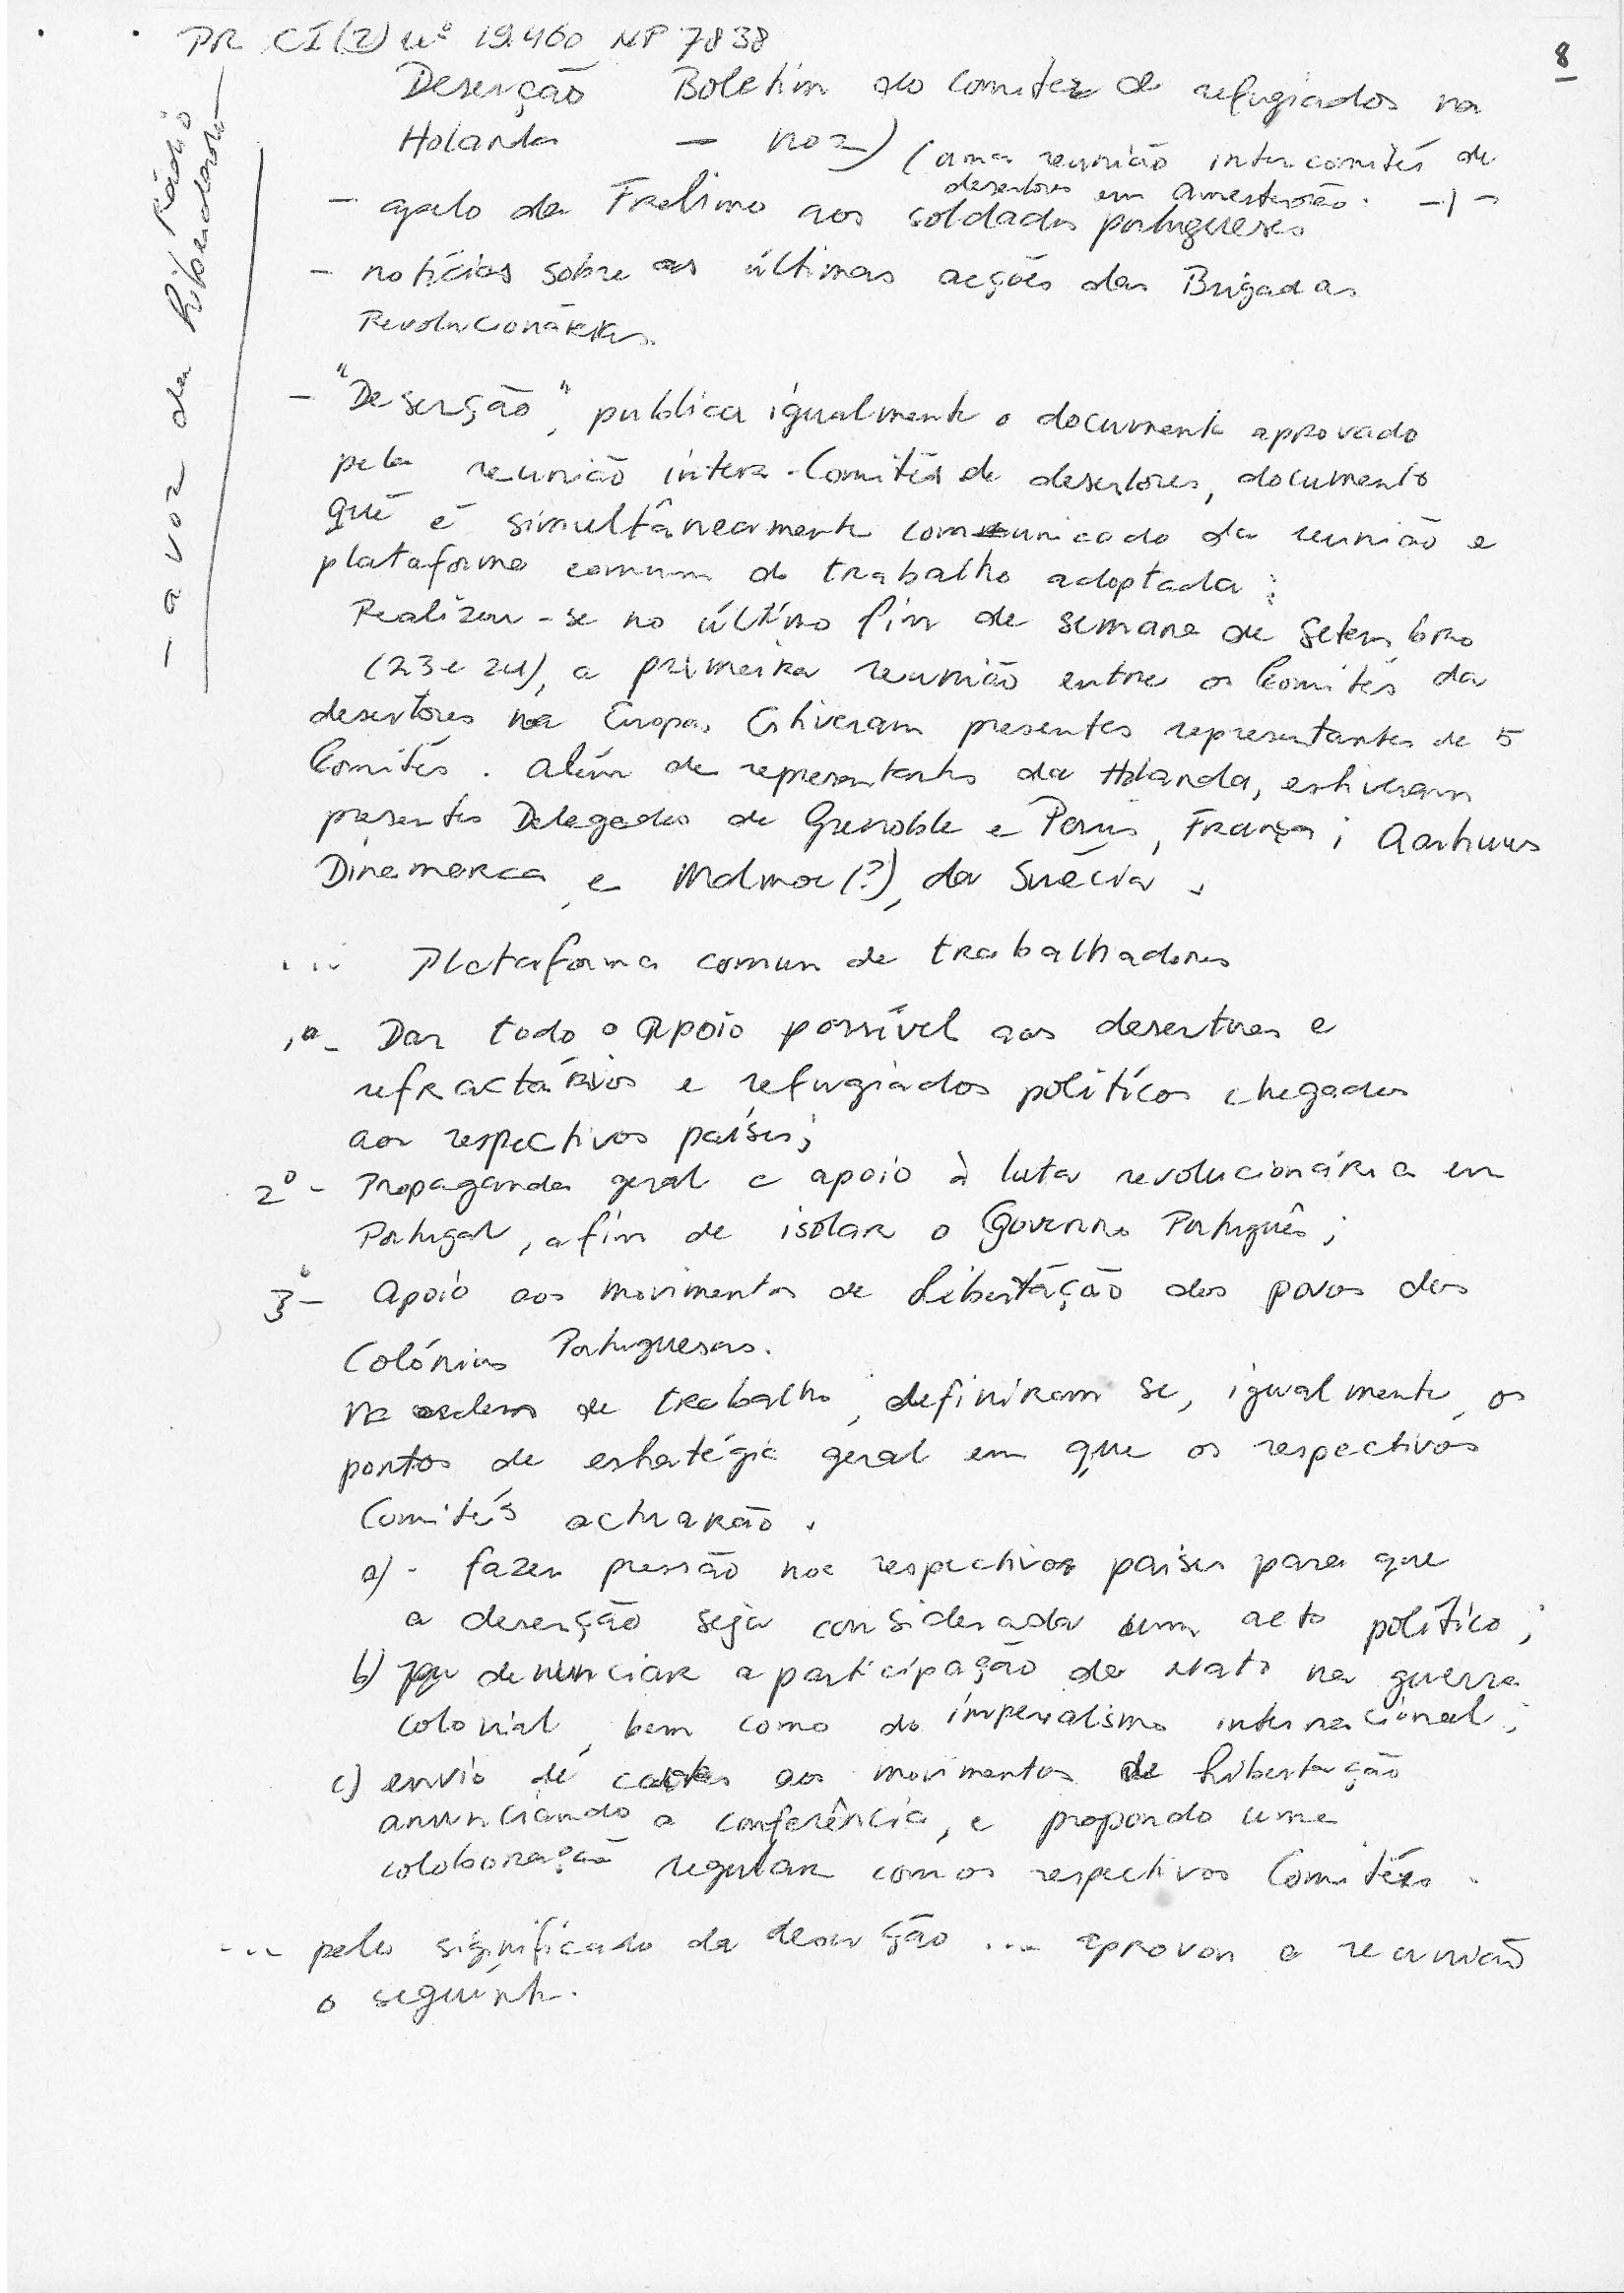 PR CI(2) nº 19.460 NP 7838
8
Deserção Boletim do Comité de refugiados na
Holanda — nº 2) (uma reunião inter comités de
desertores em Amesterdão. -1-
- apelo da Frelimo aos soldados portugueses
- notícias sobre as últimas acções das Brigadas
Revolucionárias.
- "Deserção", publica igualmente o documento aprovado
pela reunião inter-Comités de desertores, documento
que é simultâneamente comunicado da reunião e
plataforma comum de trabalho adoptada:
Realizou-se no último fim de semana de Setembro
(23 e 24), a primeira reunião entre os Comités da
desertores na Europa. Estiveram presentes representantes de 5
Comités. Além de representantes da Holanda, estiveram
presentes Delegados de Grenoble e Paris, França; Aarhuus
Dinamarca, e Malmoe(?), da Suécia.
... Plataforma comum de trabalhadores
1º- Dar todo o apoio possível aos desertores e
refractários e refugiados políticos chegados
aos respectivos países;
2º- Propaganda geral e apoio à luta revolucionária em
Portugal, afim de isolar o Governo Português;
3º- Apoio aos movimentos de Libertação dos povos das
Colónias Portuguesas.
Na ordem de trabalho, definiram se, igualmente, os
pontos de estratégia geral em que os respectivos
Comités actuarão.
a)- fazer pressão nos respectivos países para que
a deserção seja considerada um acto político;
b) denunciar a participação da Nato na guerra
colonial, bem como do imperialismo internacional;
c) envio de cartas aos movimentos de Libertação
anunciando a conferência, e propondo uma
colaboração regular com os respectivos Comités.
... pelo significado da deserção ... aprovou a reunião
o seguinte.
- a voz da Liberdade —
Rádio